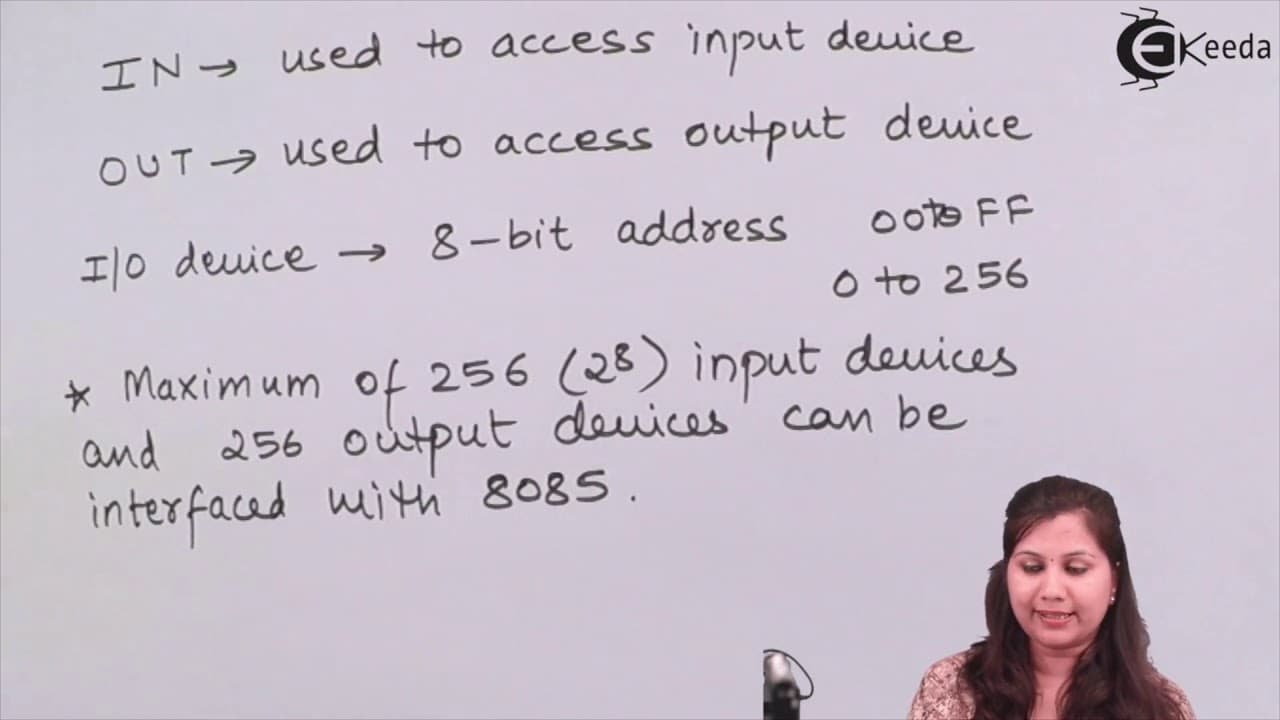 EKeeda
IN → used to access input device
OUT → used to access output device
I/O device → 8-bit address 00 to FF
0 to 256
* Maximum of 256 (2⁸) input devices
and 256 output devices can be
interfaced with 8085.